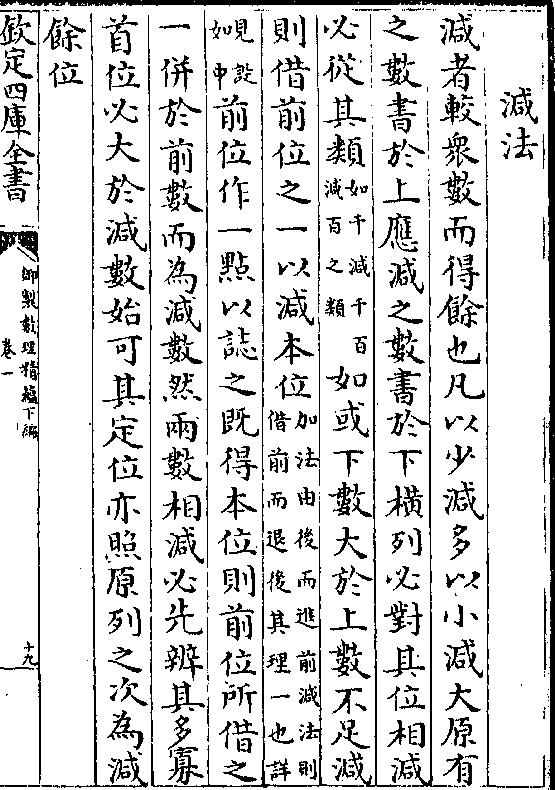 減法
減者較衆數而得餘也凡以少減多以小減大原有
之數書於上應減之數書於下橫列必對其位相減
必從其類如千減千百減百之類如或下數大於上數不足減
則借前位之一以減本位加法由後而進前減法則借前而退後其理一也詳
見設如中前位作一點以誌之既得本位則前位所借之
一併於前數而為減數然兩數相減必先辨其多寡
首位必大於減數始可其定位亦照原列之次為減
餘位
欽定四庫全書
御製數理精蘊下編
卷一
十九